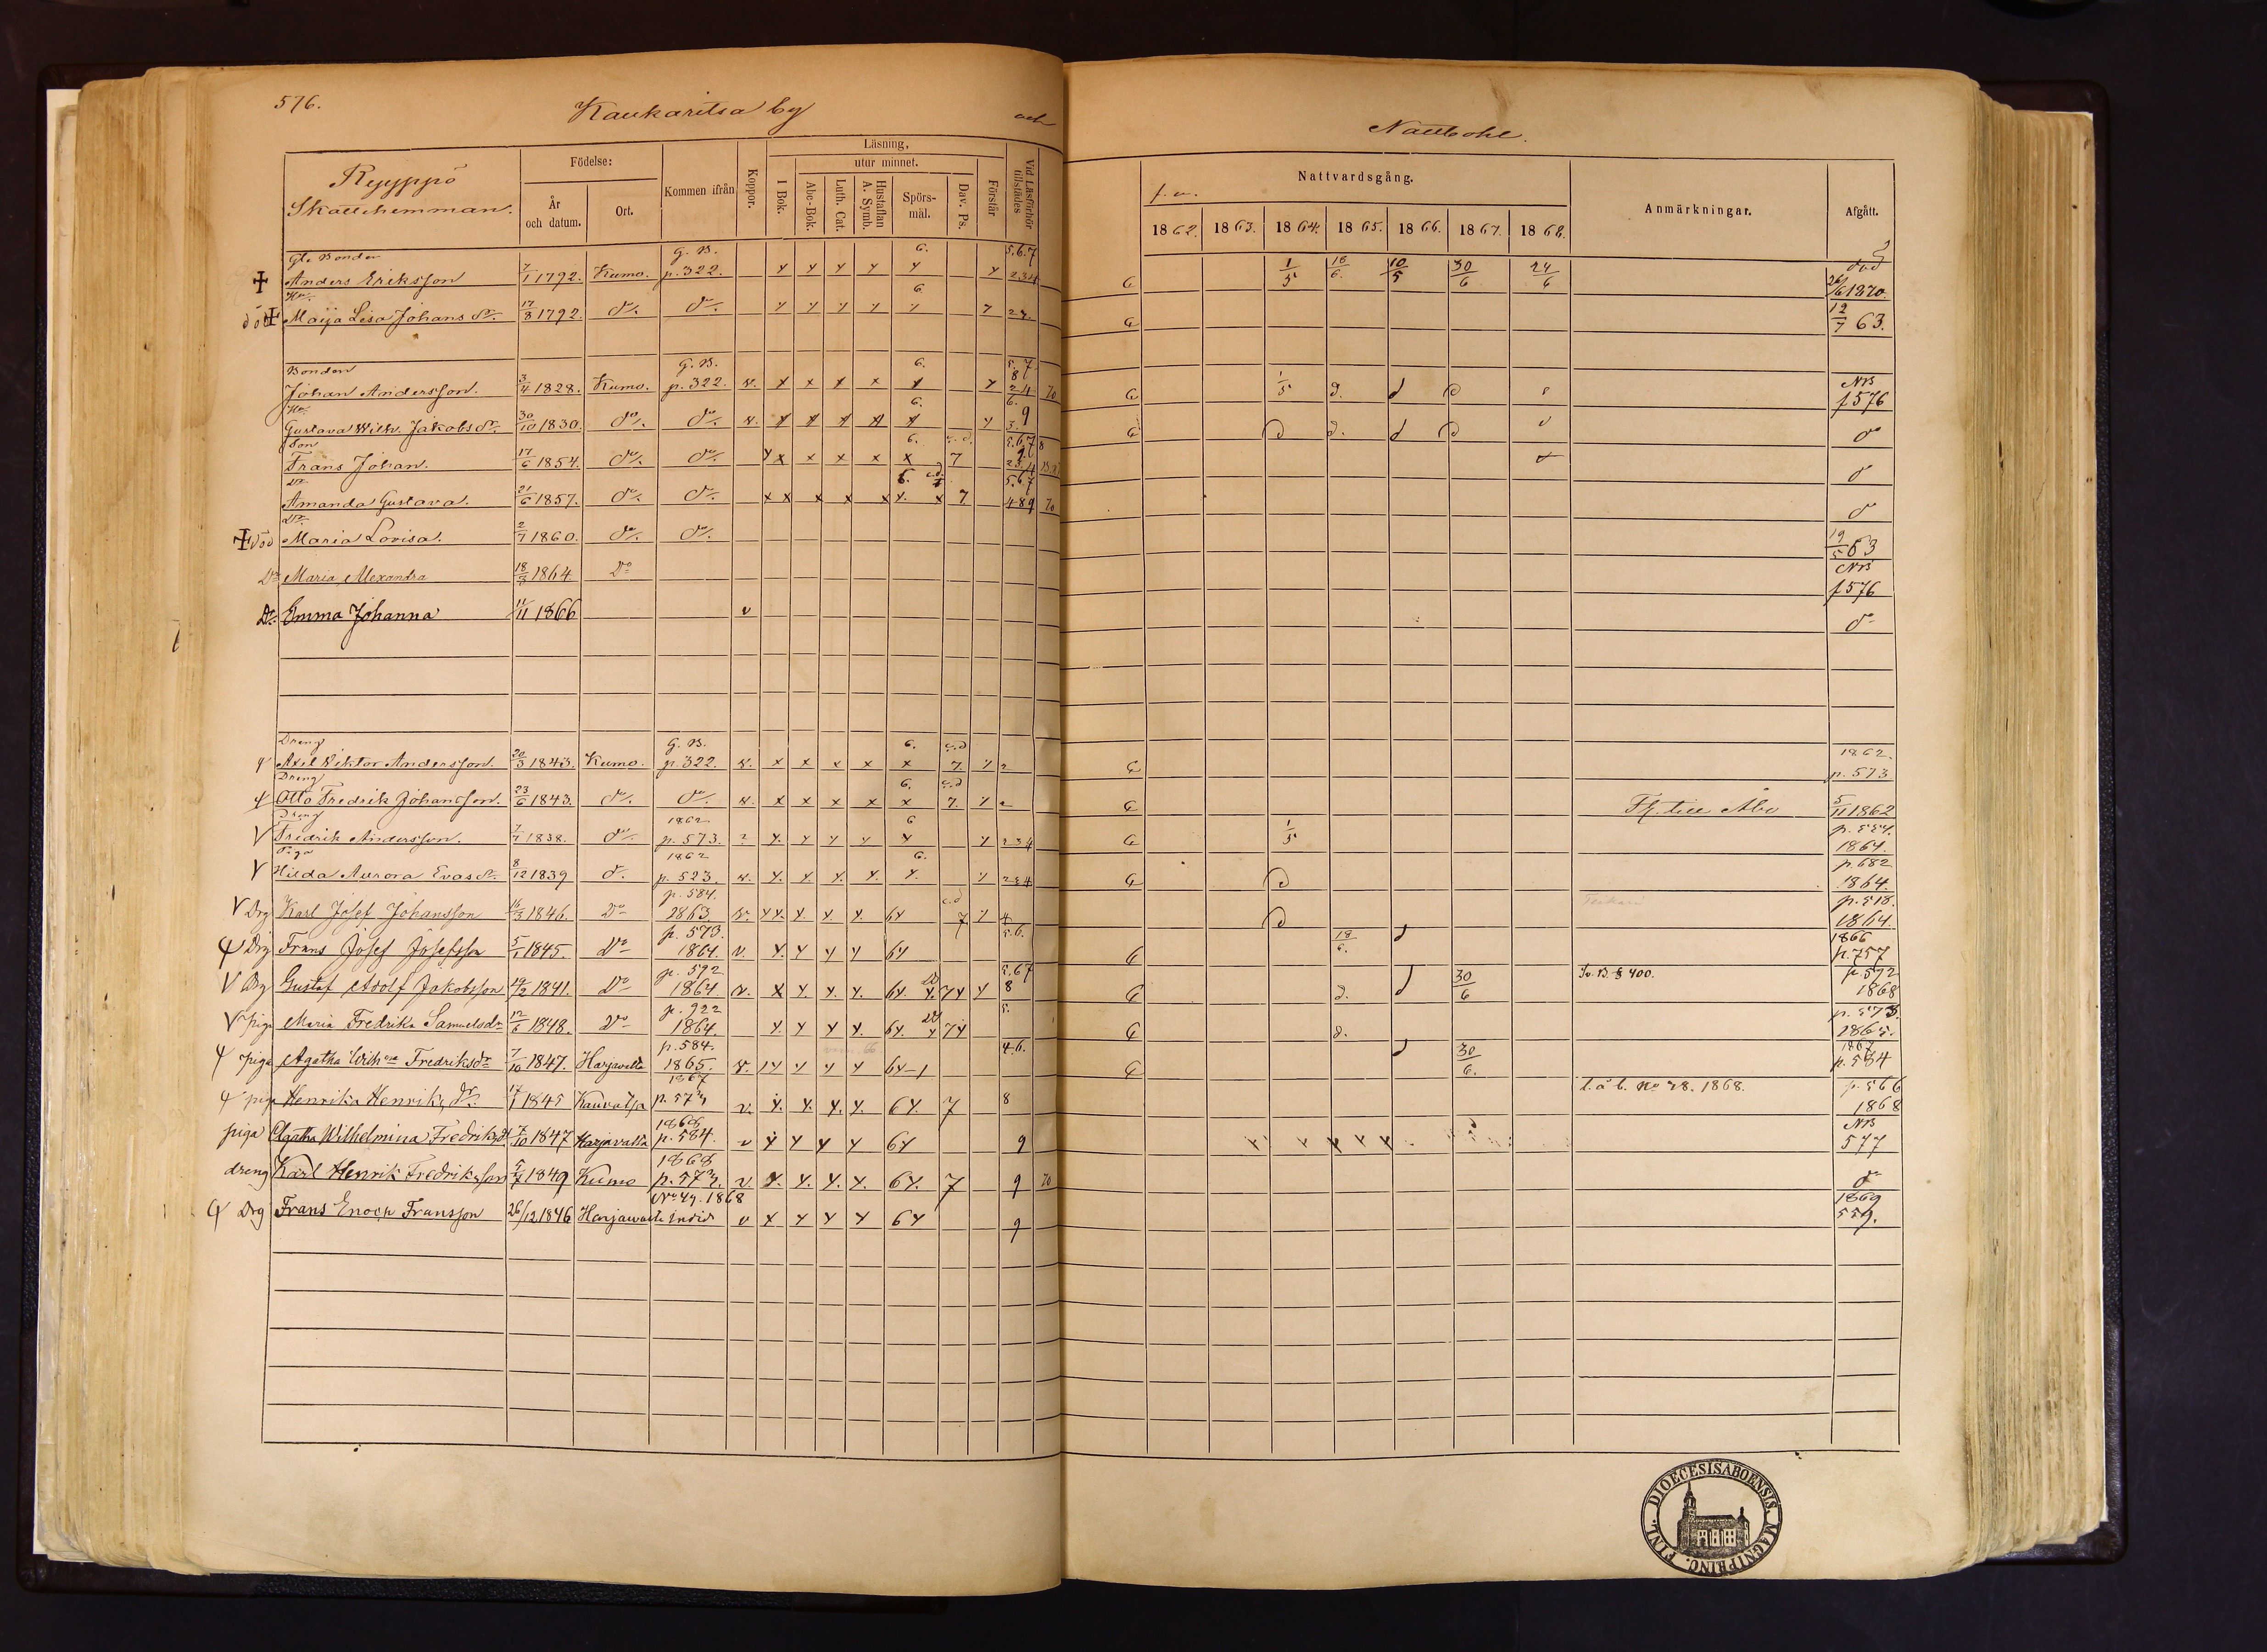 576.
Kaukaritsa by
och
Nattbohl.
Ryyppö
Skattehemman.
Födelse:
År och datum.
Ort.
Kommen ifrån
Koppor.
Läsning,
utur minnet.
I Bok.
Abc-Bok.
Luth. Cat.
Hustaflan A. Symb.
Spörs-mål.
Dav. Ps.
Förstår
Vid Läsförhör tillstädes
Nattvardsgång.
1862. 1863. 1864. 1865. 1866. 1867. 1868.
Anmärkningar.
Afgått.
Gle Bonden G. B. 6. 5.6.7 död
Anders Eriksson 7/1 1792. Kumo. p. 322. 2 3 4 1/5 18/6. 10/5 30/6 24/6 26/6 1870.
Hu. 6
död Maija Lisa Johans dr. 17/8 1792. do. do. 12/7 63.
Bonden G. B. 6. 5. 7 8
Johan Andersson. 3/4 1828. Kumo. p. 322. v. x x x x x 2 4 70 1/5 NB f 576
Hu. 6. 6. 9
Gustava Wilh. Jakobs dr. 30/10 1830. do. do. v. 3. do
Son 6. c.d. 5.6.7 8
Frans Johan. 17/6 1854. do. do. x x x x x 7 do
Dr. 6. c.d. 5.6.7
Amanda Gustava. 21/6 1857. do. do. x x x x x 7 4 8 9 70 do
Dr.
död Maria Lovisa. 2/7 1860. do. do. 19/5 63
Dr Maria Alexandra 18/3 1864 Do NB f 576
Dr. Emma Johanna 11/11 1866 v do
Dreng G. B. 6. c.d 1862.
Axel Viktor Andersson. 20/3 1843. Kumo. p. 322. v. x x x x x 7. 2 p. 573
Dreng 6. c.d
Otto Fredrik Johansson. 23/6 1843. do. do. v. x x x x x 7. 2 Fl. till Åbo 5/11 1862
Dreng 1862 6 p. 554.
Fredrik Andersson. 7/7 1838. do p. 573. 2 3 4 1/5 1864.
Piga 1862 6. p. 682
Hilda Aurora Evas dr. 8/12 1839 do. p. 523. v. 2 3 4 1864.
p. 584. c.d p. 518.
Drg Karl Josef Johansson 16/3 1846. Do 1863. v. 6 7 4 1864.
p. 573. 5.6. 1866
Drg Frans Josef Josefsson 5/1 1845. Do 1864. v. 6 18/6. p. 757
p. 592 5.6 7 p. 592
Drg Gustaf Adolf Jakobsson 19/2 1841. Do 1864 v. 6 7 8 30/6 Sv. B. § 400. 1868
p. 922 5. p. 573.
piga Maria Fredrika Samuelsdr 12/6 1848. Do 1864. 6 7 1865.
p. 584. 4.6. 1867
piga Agatha Wilh:na Fredriksdr 7/10 1847. Harjavalta 1865. v. 6 30/6. p. 584
1867 l. a b. No 28. 1868. p. 566
piga Henrika Henriks dr. 17/1 1845 Kauvatsa p. 573 v. 6 7 8 1868
1868 NB
piga Agatha Wilhelmina Fredriks dr 7/10 1847 Harjavalta p. 584. v 6 9 577
1868
dreng Karl Henrik Fredriksson 5/7 1849 Kumo p. 573. v. 6 7 9 70 do
No 49. 1868 1869
Drg Frans Enoch Fransson 26/12 1846 Harjavalta v 6 9 559.
DIOECESIS ABOENSIS. MAGNI PRINC. FINL.